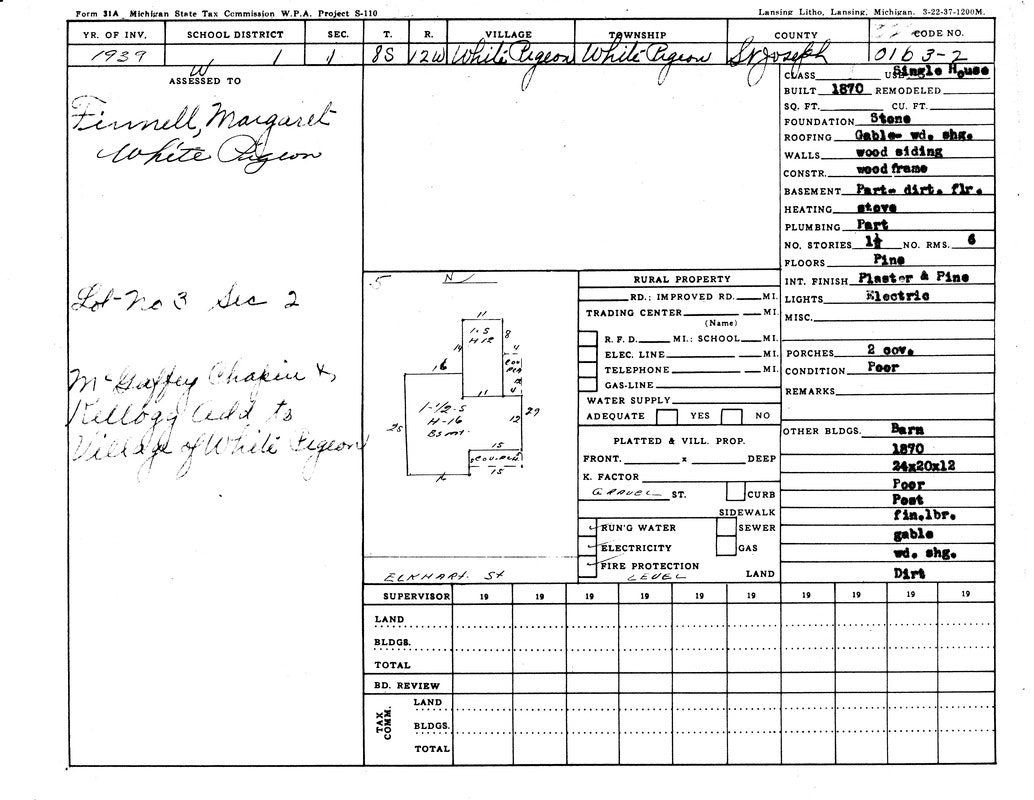 Form 31A Michigan State Tax Commission W.P.A. Project S-110
Lansing Litho, Lansing, Michigan. 3-22-37-1200M.
YR. OF INV. SCHOOL DISTRICT SEC. T. R. VILLAGE TOWNSHIP COUNTY CODE NO.
1939 1 1 8S 12W White Pigeon White Pigeon St Joseph 0163-2
W
ASSESSED TO
Finnell, Margaret
White Pigeon
Lot-No 3 Sec 2
McGaffey Chapin &
Kellogg Add to
Village of White Pigeon
CLASS USE Single House
BUILT 1870 REMODELED
SQ. FT. CU. FT.
FOUNDATION Stone
ROOFING Gable- wd. shg.
WALLS wood siding
CONSTR. wood frame
BASEMENT Part- dirt. flr.
HEATING stove
PLUMBING Part
NO. STORIES 1½ NO. RMS. 6
FLOORS Pine
INT. FINISH Plaster & Pine
LIGHTS Electric
MISC.
PORCHES 2 cov.
CONDITION Poor
REMARKS
OTHER BLDGS. Barn
1870
24x20x12
Poor
Post
fin.lbr.
gable
wd. shg.
Dirt
.5 N
11
1-S
H 12
8
14
4
COV
PCH
16
11 4
1-1/2-S
H-16
Bsmt.
25
12
29
15
COV-PCH
15
16
ELKHART. St
RURAL PROPERTY
RD.; IMPROVED RD. MI.
TRADING CENTER MI.
(Name)
R. F. D. MI.; SCHOOL MI.
ELEC. LINE MI.
TELEPHONE MI.
GAS-LINE
WATER SUPPLY
ADEQUATE YES NO
PLATTED & VILL. PROP.
FRONT. x DEEP
K. FACTOR
GRAVEL ST. CURB
SIDEWALK
RUN'G WATER SEWER
ELECTRICITY GAS
FIRE PROTECTION
LEVEL LAND
SUPERVISOR 19 19 19 19 19 19 19 19 19
LAND
BLDGS.
TOTAL
BD. REVIEW
TAX COMM.
LAND
BLDGS.
TOTAL